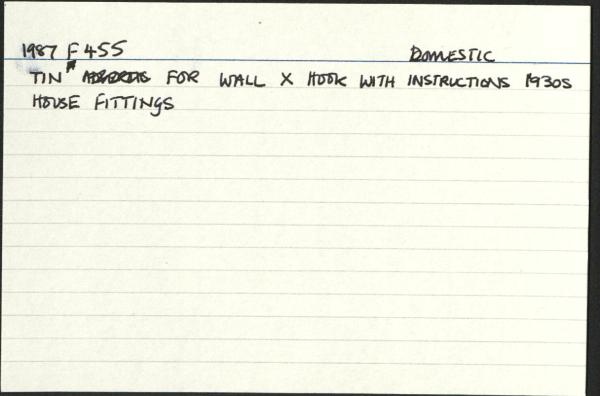 1987 F 455 DOMESTIC
TIN FOR WALL X HOOK WITH INSTRUCTIONS 1930S
HOUSE FITTINGS